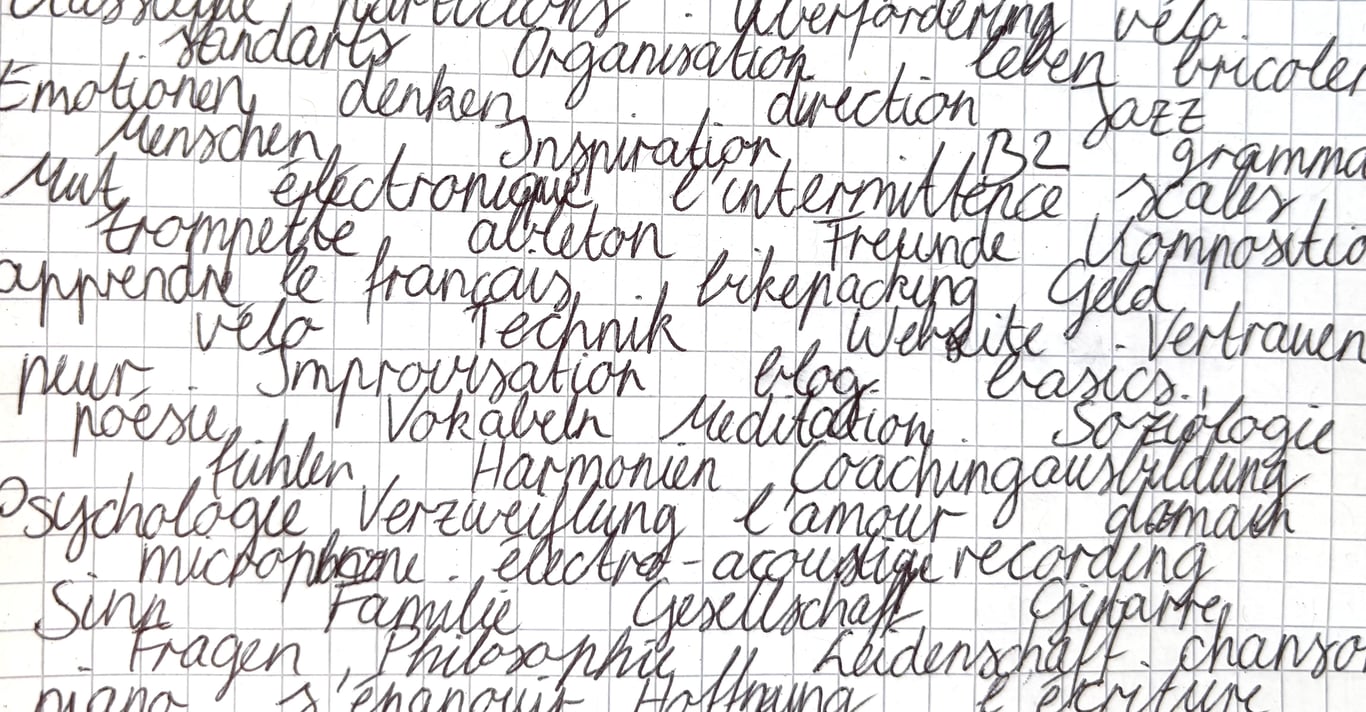 classique, partitions. Überforderung vélo.
standarts Organisation leben bricoler
Emotionen, denken, direction Jazz
Menschen, Inspiration, B2 gramma
Mut, électronique, l'intermittence, scales,
trompette, ableton Freunde Kompositio
apprendre le français, bikepacking, Geld
vélo Technik Website. Vertrauen
peur. Improvisation blog. basics.,
poésie, Vokabeln Meditation. Soziologie
fühlen, Harmonien Coachingausbildung
Psychologie, Verzweiflung l'amour
microphone. électro-acoustique recording
Sinn Familie Gesellschaft, Gitarre,
. Fragen, Philosophie,, Leidenschaft. chanso
piano s'épanouir Hoffnung l'écriture